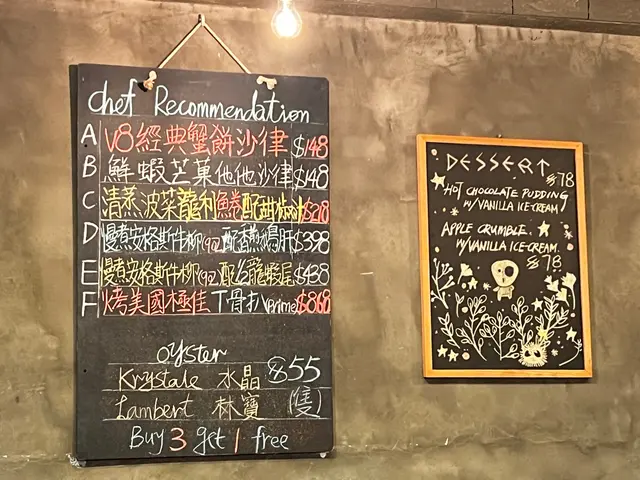 Chef Recommendation
A V8經典蟹餅沙律 $148
B 鮮蝦芒菓他他沙律 $148
C 清蒸菠菜龍利魚卷配甜 $218
D 慢煮安格斯牛柳(9oz)配香煎鵝肝 $398
E 慢煮安格斯牛柳(9oz)配龍蝦尾 $438
F 烤美國極佳T骨扒(Prime) $868
oyster
Krystale 水晶 $55
Lambert 林寶 (隻)
Buy 3 get 1 free
DESSERT
$78
HOT CHOCOLATE PUDDING
W/VANILLA ICE-CREAM
APPLE CRUMBLE.
W/VANILLA ICE-CREAM.
$78